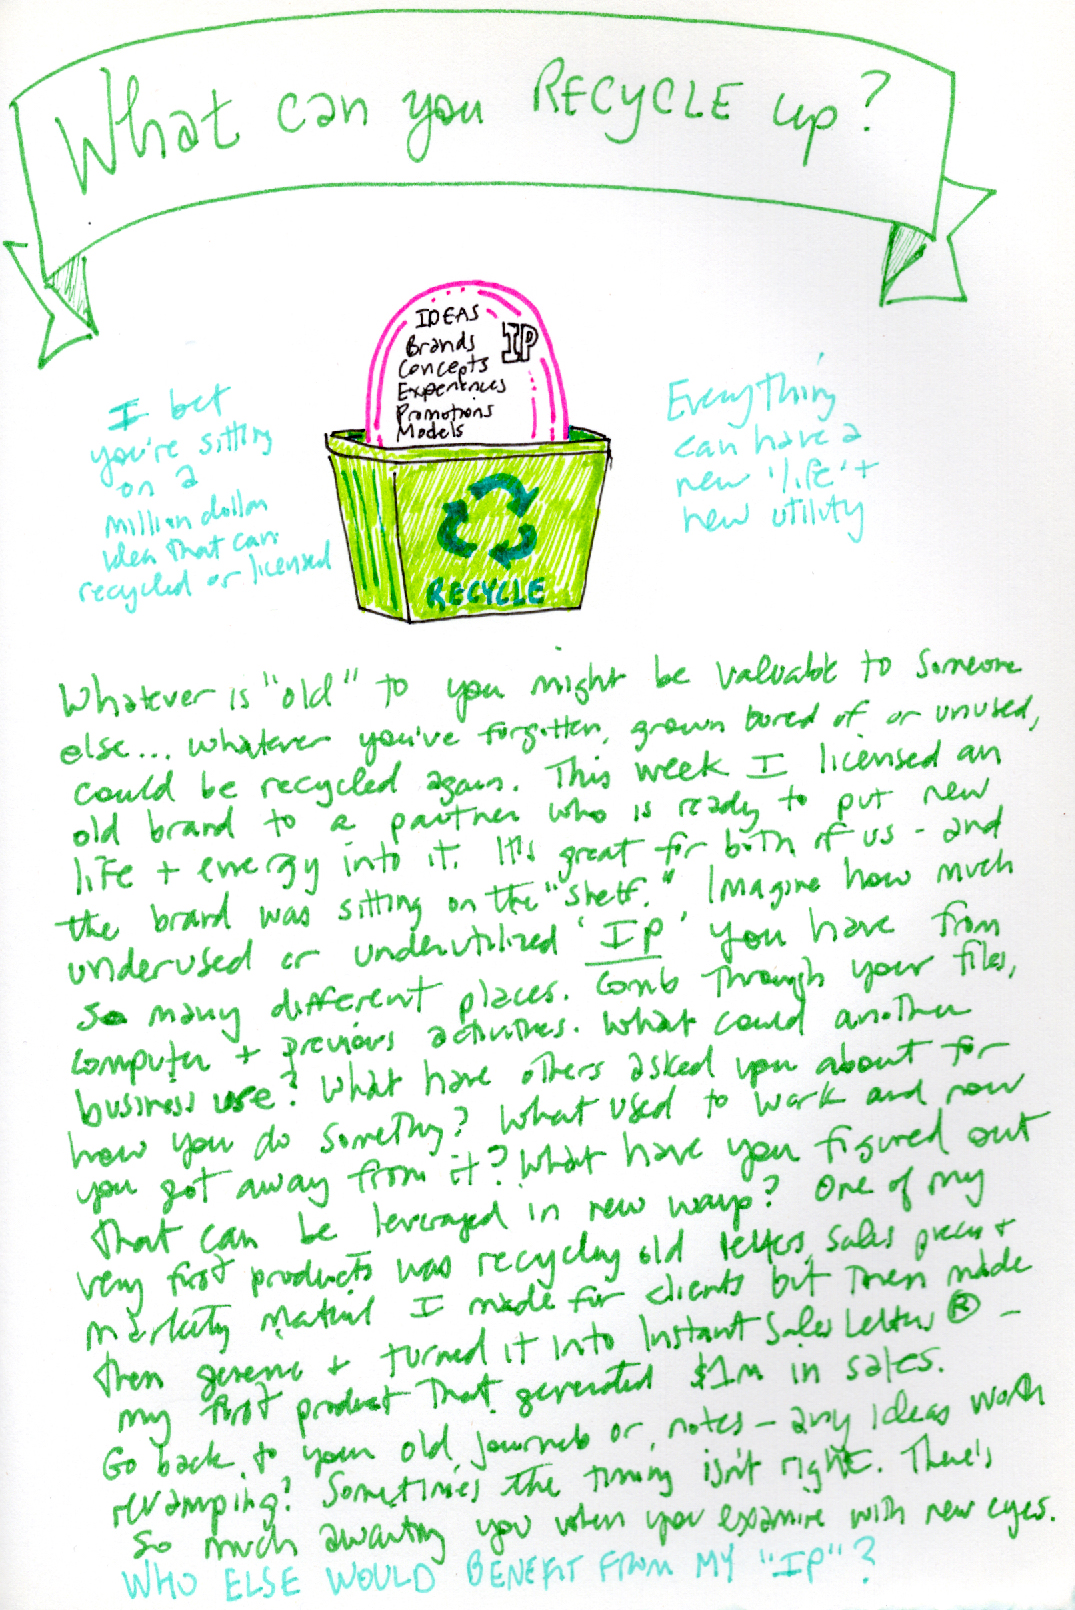 What can you RECYCLE up?
IDEAS
Brands
Concepts
Experiences
Promotions
Models
IP
I bet
you're sitting
on a
million dollar
idea that can
recycled or licensed
Everything
can have a
new 'life' +
new utility
RECYCLE
Whatever is "old" to you might be valuable to someone
else... whatever you've forgotten, grown bored of or unused,
could be recycled again. This week I licensed an
old brand to a partner who is ready to put new
life + energy into it. It's great for both of us - and
the brand was sitting on the "shelf." Imagine how much
underused or underutilized 'IP' you have from
so many different places. Comb through your files,
computer + previous activities. What could another
business use? What have others asked you about for
how you do something? What used to work and now
you got away from it? What have you figured out
that can be leveraged in new ways? One of my
very first products was recycling old letters, sales pieces +
marketing material I made for clients but then made
them generic + turned it into Instant Sales Letters® -
my first product that generated $1m in sales.
Go back to your old journals or notes - any ideas worth
revamping? Sometimes the timing isn't right. There's
so much awaiting you when you examine with new eyes.
WHO ELSE WOULD BENEFIT FROM MY "IP"?